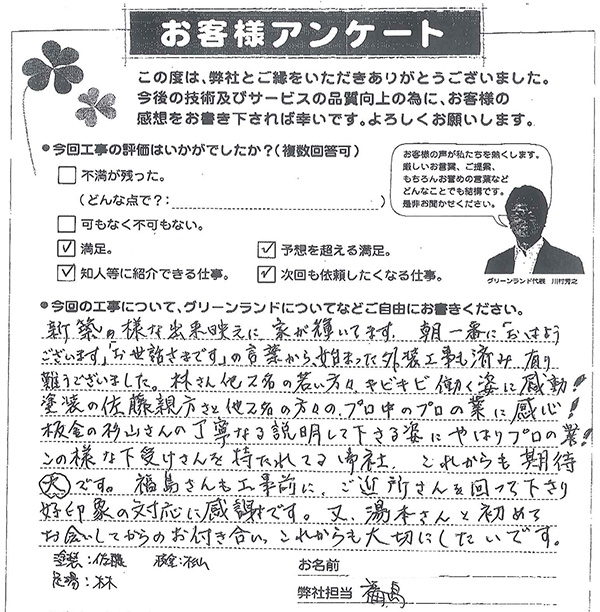 お客様アンケート
この度は、弊社とご縁をいただきありがとうございました。
今後の技術及びサービスの品質向上の為に、お客様の
感想をお書き下されば幸いです。よろしくお願いします。
●今回工事の評価はいかがでしたか？(複数回答可)
不満が残った。
(どんな点で？:)
可もなく不可もない。
満足。
予想を超える満足。
知人等に紹介できる仕事。
次回も依頼したくなる仕事。
お客様の声が私たちを熱くします。
厳しいお言葉、ご提案、
もちろんお誉めの言葉など
どんなことでも結構です。
是非お聞かせください。
グリーンランド代表 川村芳之
●今回の工事について、グリーンランドについてなどご自由にお書きください。
新築の様な出来映えに家が輝いてます。朝一番に「おはよう
ございます」「お世話さまです」の言葉から始まった外装工事も済み 有り
難うございました。林さん他2名の若い方々、キビキビ働く姿に感動!
塗装の佐藤親方さと他2名の方々の、プロ中のプロの業に感心!
板金の杉山さんの丁寧なる説明して下さる姿にやはりプロの業!
この様な下受けさんを持たれてる御社、これからも期待
大です。福島さんも工事前に、ご近所さんを回って下さり
好印象の対応に感謝です。又、湯本さんと初めて
お会いしてからのお付き合い、これからも大切にしたいです。
塗装:佐藤 板金:杉山
足場:林
お名前
弊社担当 福島